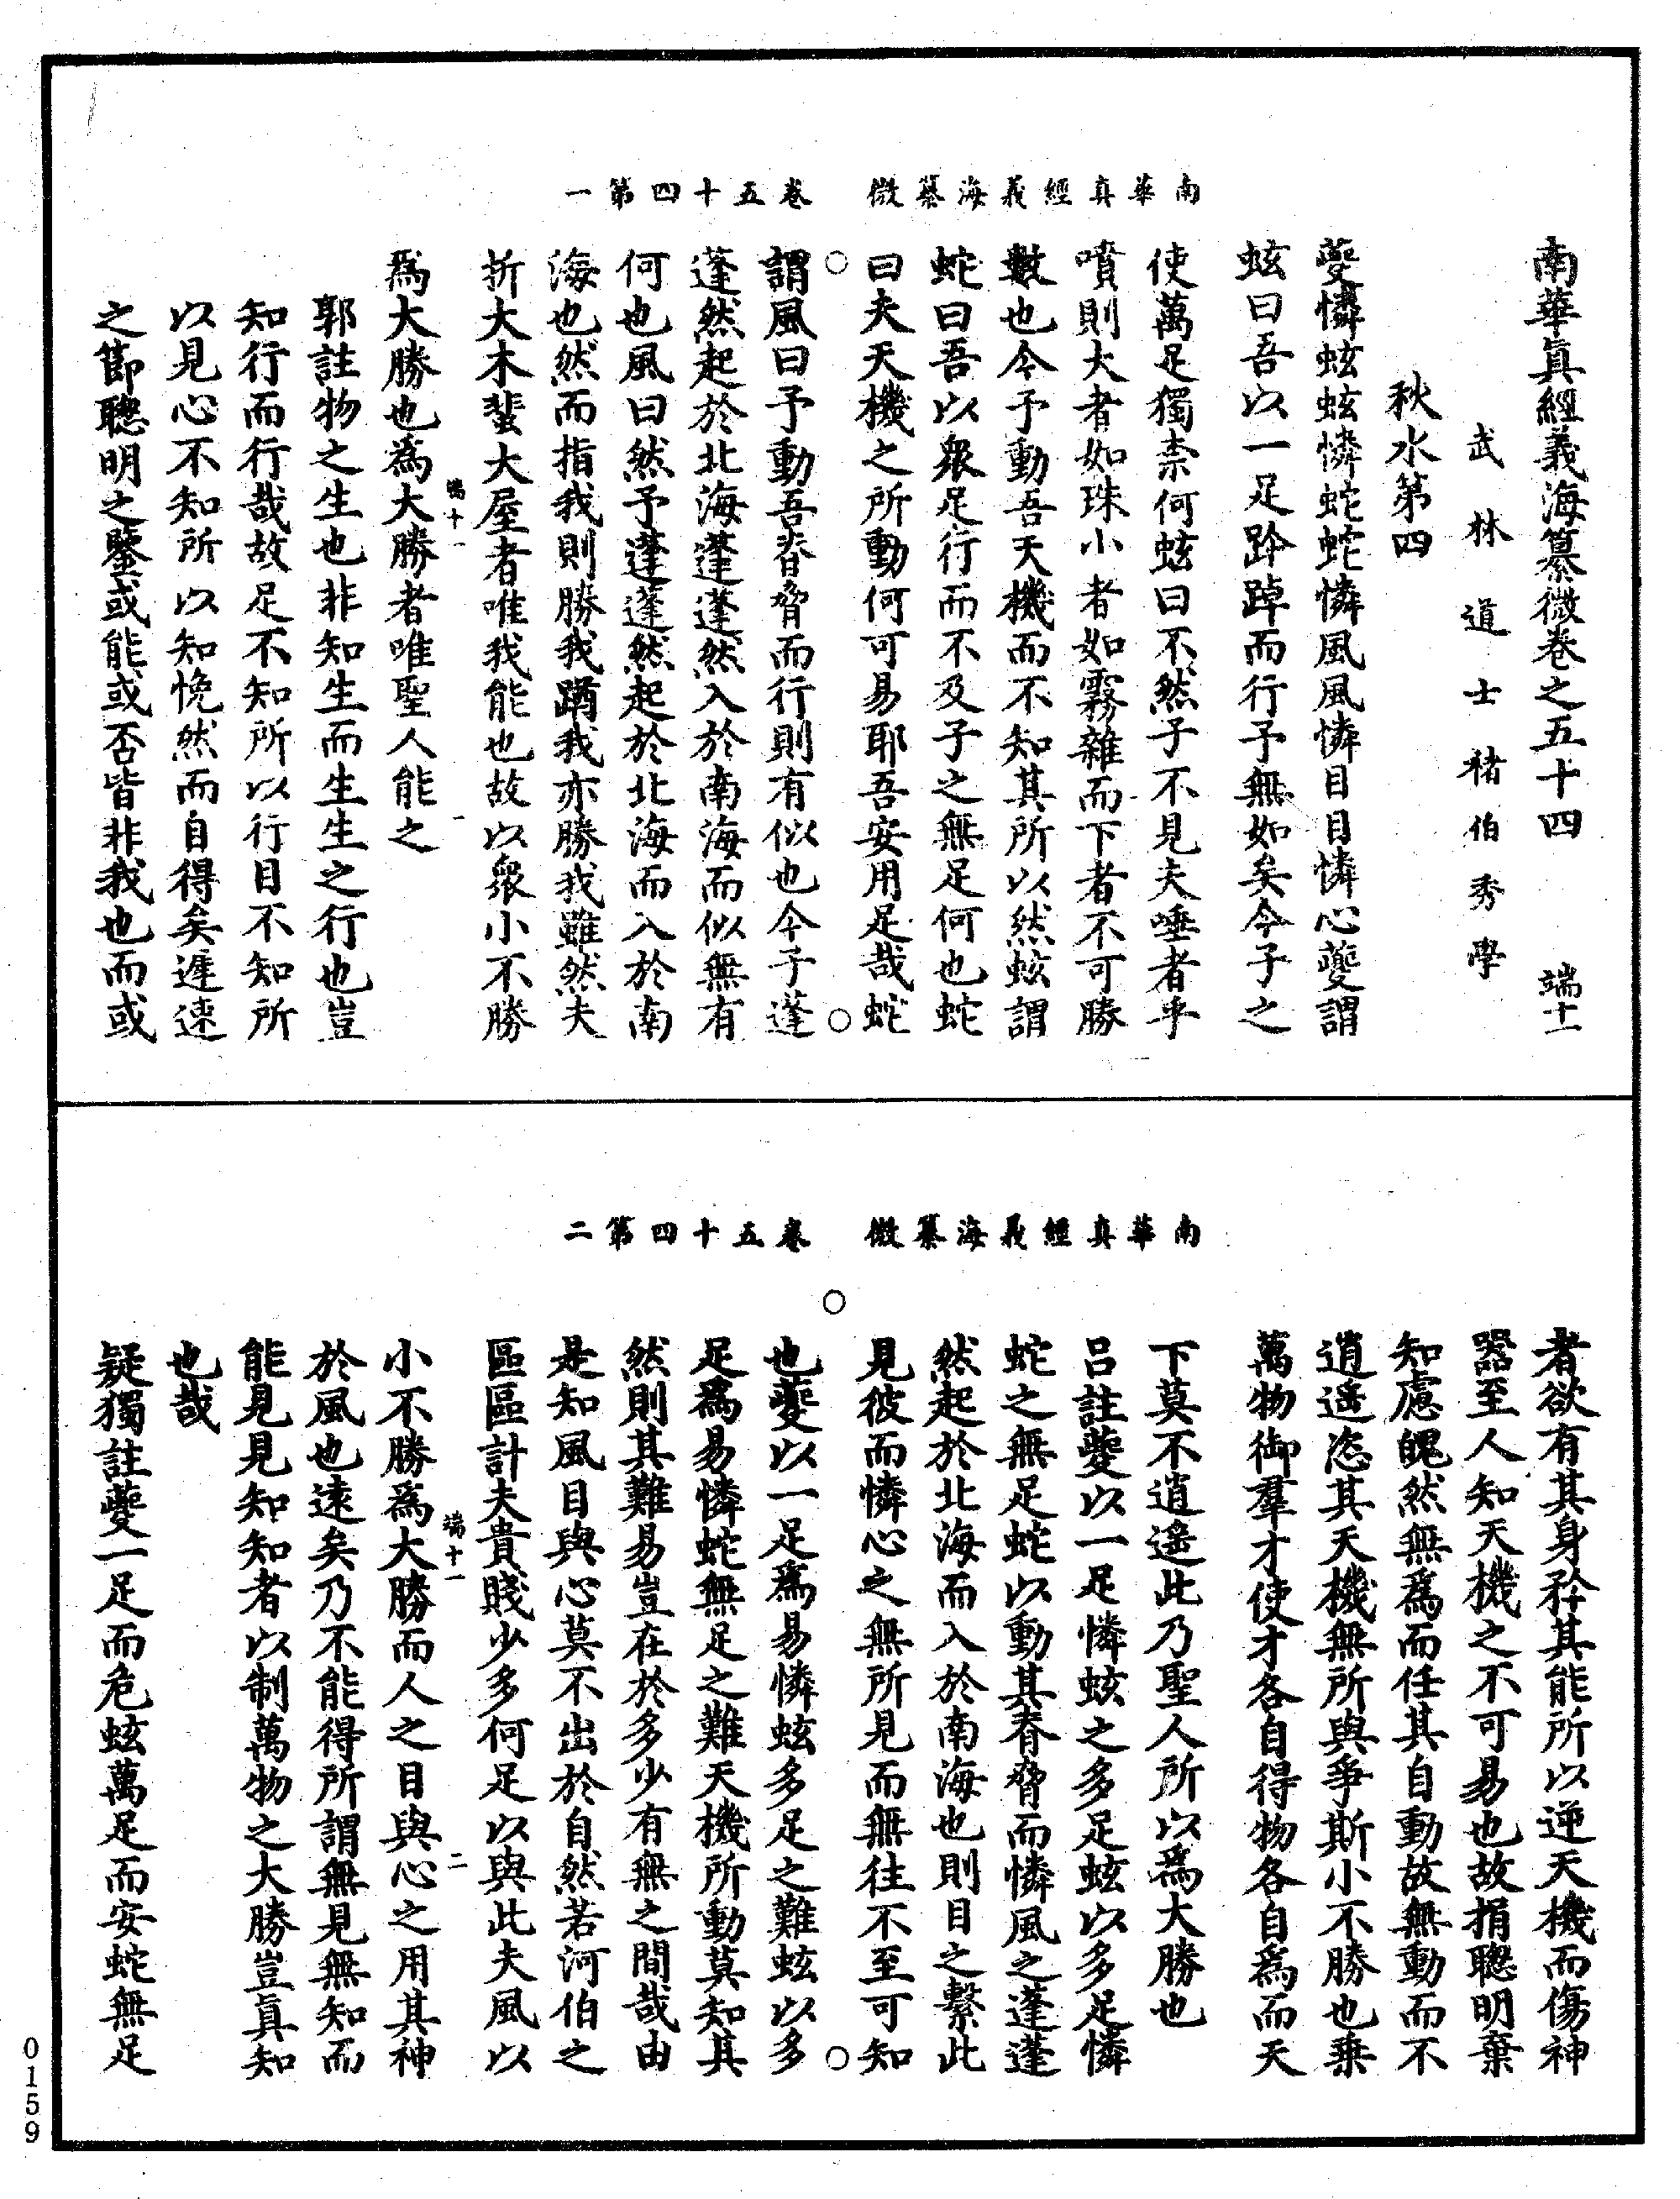 南華真經義海纂微　卷五十四第一
南華眞經義海纂微卷之五十四　端十一
武林道士褚伯秀學
秋水第四
夔憐蚿蚿憐蛇蛇憐風風憐目目憐心夔謂
蚿曰吾以一足趻踔而行予無如矣今子之
使萬足獨柰何蚿曰不然子不見夫唾者乎
噴則大者如珠小者如霧雜而下者不可勝
數也今予動吾天機而不知其所以然蚿謂
蛇曰吾以衆足行而不及子之無足何也蛇
曰夫天機之所動何可易耶吾安用足哉蛇
謂風曰予動吾脊脅而行則有似也今子蓬
蓬然起於北海蓬蓬然入於南海而似無有
何也風曰然予蓬蓬然起於北海而入於南
海也然而指我則勝我䠓我亦勝我雖然夫
折大木蜚大屋者唯我能也故以衆小不勝
端十一　一
爲大勝也爲大勝者唯聖人能之
郭註物之生也非知生而生生之行也豈
知行而行哉故足不知所以行目不知所
以見心不知所以知俛然而自得矣遲速
之節聰明之鑒或能或否皆非我也而或
南華真經義海纂微　卷五十四第二
者欲有其身矜其能所以逆天機而傷神
器至人知天機之不可易也故捐聰明棄
知慮魄然無爲而任其自動故無動而不
逍遙恣其天機無所與爭斯小不勝也乗
萬物御羣才使才各自得物各自爲而天
下莫不逍遙此乃聖人所以爲大勝也
吕註夔以一足憐蚿之多足蚿以多足憐
蛇之無足蛇以動其脊脅而憐風之蓬蓬
然起於北海而入於南海也則目之繫此
見彼而憐心之無所見而無往不至可知
也夔以一足爲易憐蚿多足之難蚿以多
足爲易憐蛇無足之難天機所動莫知其
然則其難易豈在於多少有無之間哉由
是知風目與心莫不出於自然若河伯之
區區計夫貴賤少多何足以與此夫風以
端十一　二
小不勝爲大勝而人之目與心之用其神
於風也遠矣乃不能得所謂無見無知而
能見見知知者以制萬物之大勝豈眞知
也哉
疑獨註夔一足而危蚿萬足而安蛇無足
0159